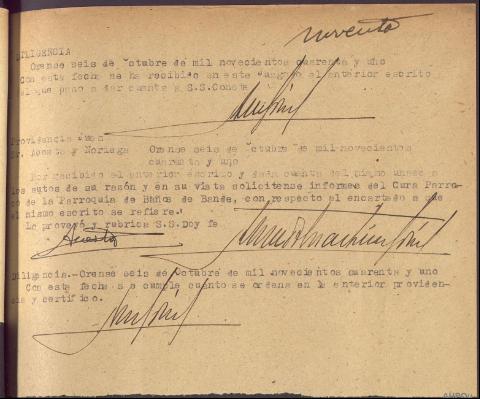 noventa
DILIGENCIA
Orense seis de Octubre de mil novecientos cuarenta y uno
Con esta fecha se ha recibido en este Juzgado el anterior escrito
del que paso a dar cuenta a S.S. Consta
Providencia Juez
Sr. Acosta y Noriega Orense seis de Octubre de mil novecientos
cuarenta y uno
Por recibido el anterior escrito y dada cuenta del mismo unase a
los autos de su razón y en su vista solicitense informes del Cura Parro-
co de la Parroquia de Baños de Bande, con respecto al encartado a que
el mismo escrito se refiere.
Lo proveyó y rubrica S.S. Doy fe
Acosta
Diligencia.-Orense seis de Octubre de mil novecientos cuarenta y uno
Con esta fecha se cumple cuanto se ordena en la anterior providen-
cia y certifico.